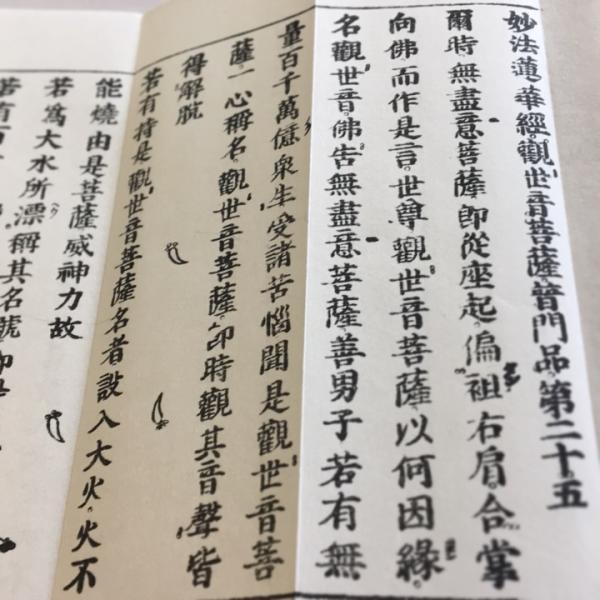 妙法蓮華經觀世音菩薩普門品第二十五
爾時無盡意菩薩即從座起偏袒右肩合掌
向佛而作是言世尊觀世音菩薩以何因緣
名觀世音佛告無盡意菩薩善男子若有無
量百千萬億衆生受諸苦惱聞是觀世音菩
薩一心稱名觀世音菩薩即時觀其音聲皆
得解脱
若有持是觀世音菩薩名者設入大火火不
能燒由是菩薩威神力故
若爲大水所漂稱其名號即
若有百